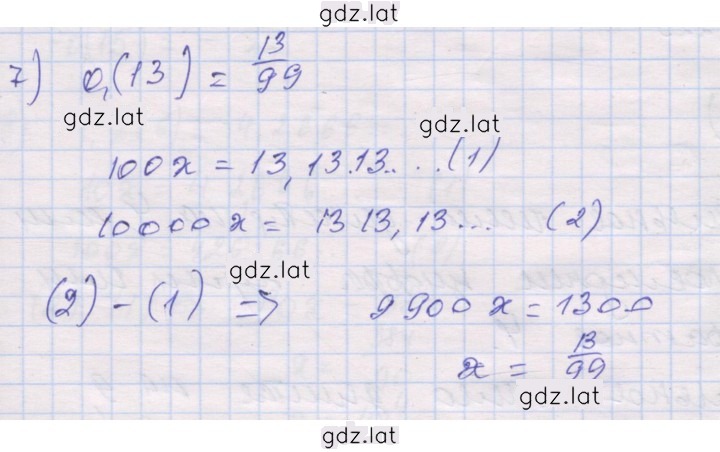 gdz.lat
7) 0,(13) = 13/99
gdz.lat
gdz.lat
100x = 13,1313... (1)
10000x = 1313,13... (2)
gdz.lat
(2) - (1) => 9900x = 1300
x = 13/99
gdz.lat
gdz.lat